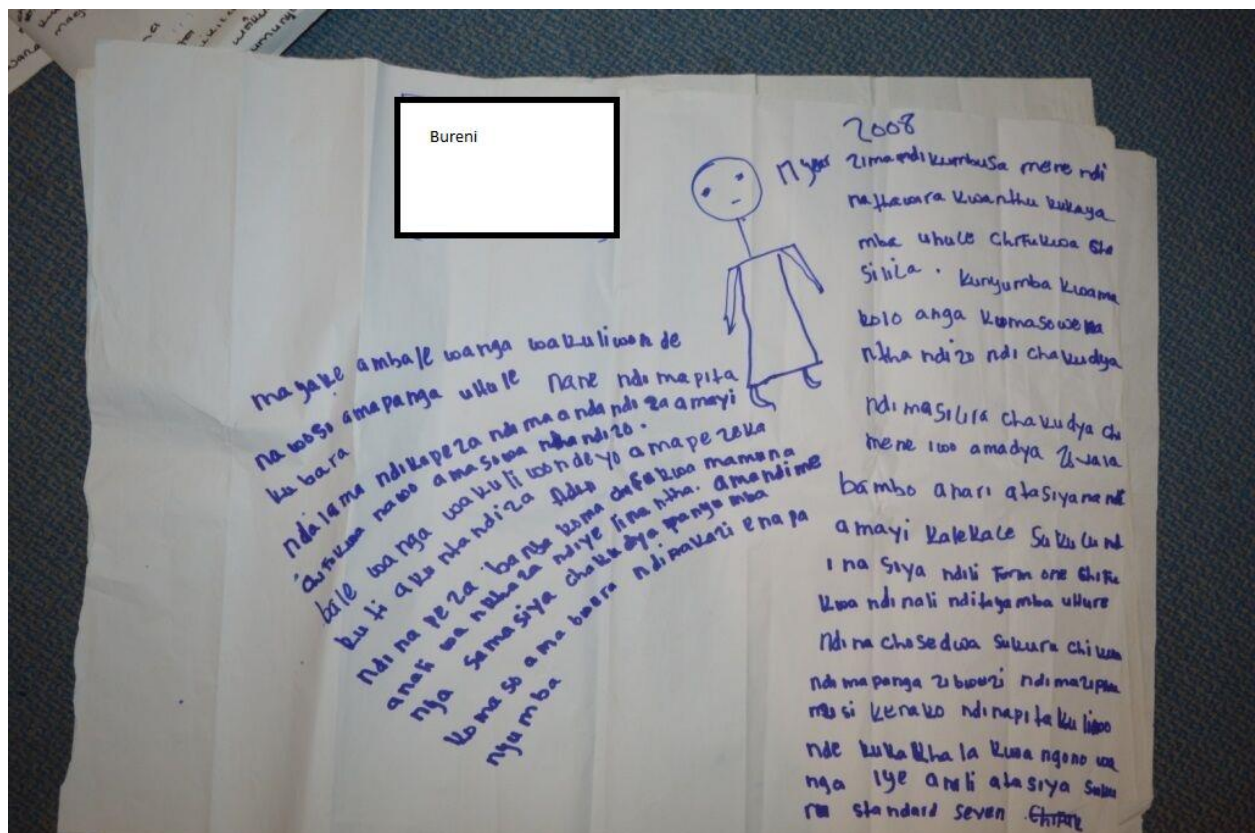 Bureni
2008
zimandikumbusa mene ndi
nathawara kwanthu kukaya
mba uhule chifukwa cha
Silila . kunyumba kwama
kolo anga kumasowema
ntha ndizo ndi chakudya
ndimasilira chakudya chi
mene iwo amadya
bambo anari atasiyana ndi
amayi kalekale Sukulu nd
ina siya ndili Form one chifu
kwa ndinali nditayamba uhure
ndina chosedwa sukuru chi
ndimapanga zibwezi
musi kenako ndinapita ku liwo
nde kukakhala kwa ngono wa
nga iye anali atasiya suku
ru standard seven
magake ambale wanga wakuliwonde
nawosi amapanga uhule nane ndimapita
kubara
ndalama ndikapeza ndimaandandiza amayi
chifukwa nawo amasowa nthandizo.
bale wanga wakuliwondeyo amapezeka
kuti akuntandiza
ndinapeza banja koma chifukwa mamuna
anali wankhaza ndiye linantha. amandime
nya samasiya chakudya panyumba
komaso ama bwera ndimakazi enapa
nyumba